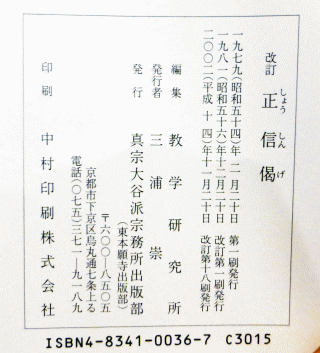 改訂 正信偈
しょうしんげ
一九七九(昭和五十四)年 二月二十日 第一刷発行
一九八一(昭和五十六)年十二月二十日 改訂第一刷発行
二〇〇二(平成 十四)年十一月二十日 改訂第十八刷発行
編集 教学研究所
発行者 三浦崇
発行 真宗大谷派宗務所出版部
(東本願寺出版部)
〒六〇〇―八五〇五
京都市下京区烏丸通七条上る
電話(〇七五)三七一―九一八九
印刷 中村印刷株式会社
ISBN4-8341-0036-7 C3015